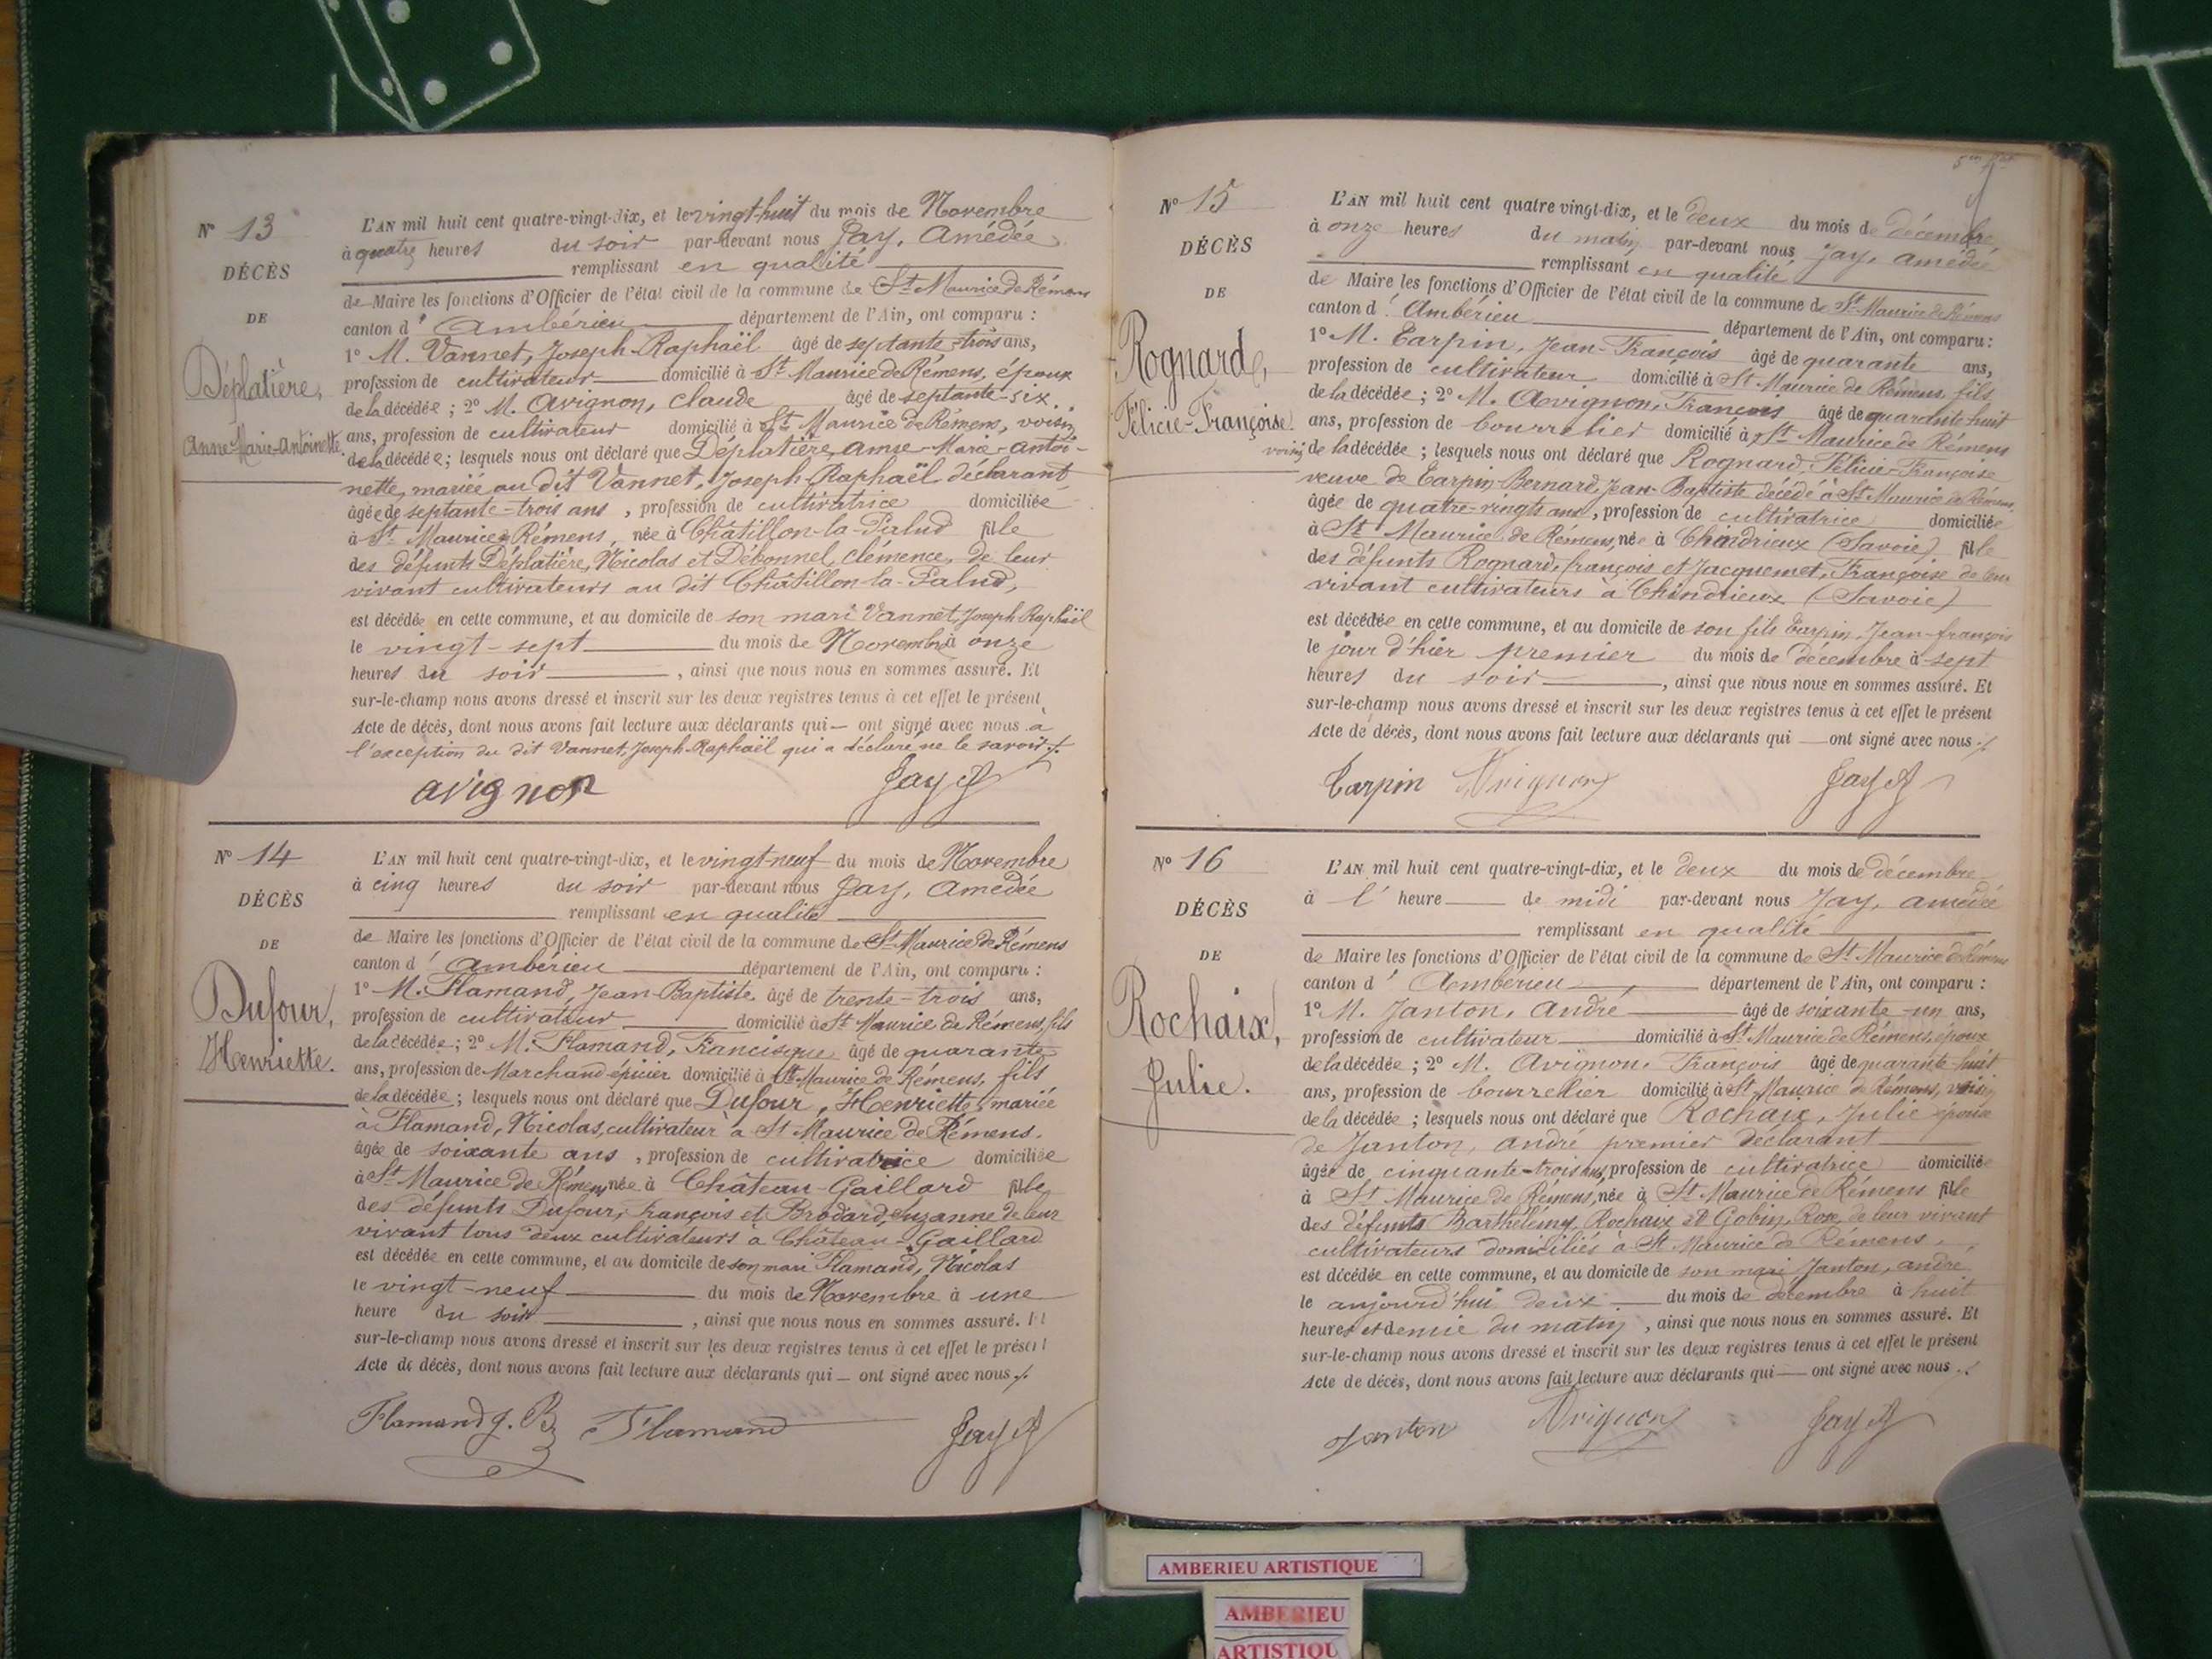 N° 13
DÉCÈS
DE
Déplatière,
Anne-Marie-Antoinette.
L'AN mil huit cent quatre-vingt-dix, et le vingt-huit du mois de Novembre
à quatre heures du soir par-devant nous Jay, Amédée
remplissant en qualité
de Maire les fonctions d'Officier de l'état civil de la commune de St Maurice de Rémens
canton d' Ambérieu département de l'Ain, ont comparu :
1° M. Vannet, Joseph-Raphaël âgé de septante-trois ans,
profession de cultivateur domicilié à St Maurice de Rémens, époux
de la décédée ; 2° M. Avignon, Claude âgé de septante-six
ans, profession de cultivateur domicilié à St Maurice de Rémens, voisin
de la décédée ; lesquels nous ont déclaré que Déplatière, Anne-Marie-Antoi-
nette, mariée au dit Vannet, Joseph-Raphaël déclarant
âgée de septante-trois ans, profession de cultivatrice domiciliée
à St Maurice de Rémens, née à Châtillon-la-Palud fille
des défunts Déplatière, Nicolas et Débonnel, Clémence, de leur
vivant cultivateurs au dit Châtillon-la-Palud,
est décédée en cette commune, et au domicile de son mari Vannet, Joseph-Raphaël
le vingt-sept du mois de Novembre à onze
heures du soir, ainsi que nous nous en sommes assuré. Et
sur-le-champ nous avons dressé et inscrit sur les deux registres tenus à cet effet le présent
Acte de décès, dont nous avons fait lecture aux déclarants qui — ont signé avec nous à
l'exception du dit Vannet, Joseph-Raphaël qui a déclaré ne le savoir ./.
avignon Jay A
N° 14
DÉCÈS
DE
Dufour,
Henriette.
L'AN mil huit cent quatre-vingt-dix, et le vingt-neuf du mois de Novembre
à cinq heures du soir par-devant nous Jay, Amédée
remplissant en qualité
de Maire les fonctions d'Officier de l'état civil de la commune de St Maurice de Rémens
canton d' Ambérieu département de l'Ain, ont comparu :
1° M. Flamand, Jean-Baptiste âgé de trente-trois ans,
profession de cultivateur domicilié à St Maurice de Rémens, fils
de la décédée ; 2° M. Flamand, Francisque âgé de quarante
ans, profession de Marchand-épicier domicilié à St Maurice de Rémens, fils
de la décédée ; lesquels nous ont déclaré que Dufour, Henriette, mariée
à Flamand, Nicolas, cultivateur à St Maurice de Rémens.
âgée de soixante ans, profession de cultivatrice domiciliée
à St Maurice de Rémens, née à Château-Gaillard fille
des défunts Dufour, François et Brodard, Suzanne de leur
vivant tous deux cultivateurs à Château-Gaillard
est décédée en cette commune, et au domicile de son mari Flamand, Nicolas
le vingt-neuf du mois de Novembre à une
heure du soir, ainsi que nous nous en sommes assuré. Et
sur-le-champ nous avons dressé et inscrit sur les deux registres tenus à cet effet le présent
Acte de décès, dont nous avons fait lecture aux déclarants qui — ont signé avec nous ./.
Flamand J. B. Flamand Jay A
N° 15
DÉCÈS
DE
Rognard,
Félicie-Françoise.
L'AN mil huit cent quatre vingt-dix, et le deux du mois de décembre,
à onze heures du matin par-devant nous Jay, Amédée
remplissant en qualité
de Maire les fonctions d'Officier de l'état civil de la commune de St Maurice de Rémens
canton d' Ambérieu département de l'Ain, ont comparu :
1° M. Carpin, Jean-François âgé de quarante ans,
profession de cultivateur domicilié à St Maurice de Rémens, fils
de la décédée ; 2° M. Avignon, François âgé de quarante-huit
ans, profession de bourrelier domicilié à St Maurice de Rémens
voisin de la décédée ; lesquels nous ont déclaré que Rognard, Félicie-Françoise
veuve de Carpin-Bernard, Jean-Baptiste décédé à St Maurice de Rémens,
âgée de quatre-vingts ans, profession de cultivatrice domiciliée
à St Maurice de Rémens, née à Chindrieux (Savoie) fille
des défunts Rognard, françois et Jacquemet, Françoise de leur
vivant cultivateurs à Chindrieux (Savoie)
est décédée en cette commune, et au domicile de son fils Carpin, Jean-françois
le jour d'hier premier du mois de décembre à sept
heures du soir, ainsi que nous nous en sommes assuré. Et
sur-le-champ nous avons dressé et inscrit sur les deux registres tenus à cet effet le présent
Acte de décès, dont nous avons fait lecture aux déclarants qui — ont signé avec nous ./.
Carpin Avignon Jay A
N° 16
DÉCÈS
DE
Rochaix,
Julie.
L'AN mil huit cent quatre-vingt-dix, et le deux du mois de décembre
à l' heure de midi par-devant nous Jay, Amédée
remplissant en qualité
de Maire les fonctions d'Officier de l'état civil de la commune de St Maurice de Rémens
canton d' Ambérieu département de l'Ain, ont comparu :
1° M. Janton, André âgé de soixante-un ans,
profession de cultivateur domicilié à St Maurice de Rémens, époux
de la décédée ; 2° M. Avignon, François âgé de quarante-huit
ans, profession de bourrelier domicilié à St Maurice de Rémens, voisin
de la décédée ; lesquels nous ont déclaré que Rochaix, Julie épouse
de Janton, André premier déclarant
âgée de cinquante-trois ans, profession de cultivatrice domiciliée
à St Maurice de Rémens, née à St Maurice de Rémens fille
des défunts Barthélémy, Rochaix et Gobin, Rose, de leur vivant
cultivateurs domiciliés à St Maurice de Rémens,
est décédée en cette commune, et au domicile de son mari Janton, andré
le aujourd'hui deux du mois de décembre à huit
heures et demie du matin, ainsi que nous nous en sommes assuré. Et
sur-le-champ nous avons dressé et inscrit sur les deux registres tenus à cet effet le présent
Acte de décès, dont nous avons fait lecture aux déclarants qui — ont signé avec nous ./.
Janton Avignon Jay A
AMBERIEU ARTISTIQUE
AMBERIEU
ARTISTIQU